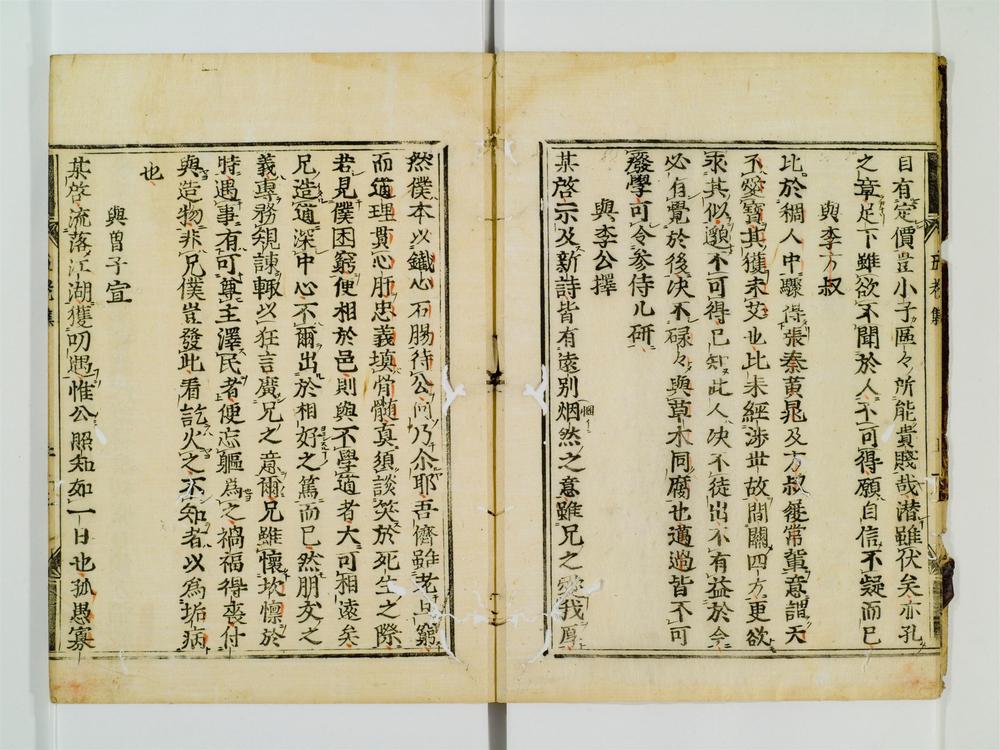 自有定價豈小子區々所能貴賤哉潜雖伏矣亦孔
之章足下雖欲不聞於人不可得願自信不疑而已
與李方叔
比於稠人中驟得張秦黃晁及方叔履常輩意謂天
不愛寶其獲未艾也比来經涉世故間關四方更欲
求其似邈不可得已知此人决不徒出不有益於今
必有覺於後决不碌々與草木同腐也邁過皆不可
癈學可令参侍几研
與李公擇
某啓示及新詩皆有遠別惘然之意雖兄之愛我厚
然僕本以鐵心石腸待公何乃尒耶吾儕雖老且窮
而道理貫心肝忠義填骨髄真須談笑於死生之際
若見僕困窮便相於邑則與不學道者大可相遠矣
兄造道深中心不爾出於相好之篤而已然朋友之
義專務規諫輙以狂言廣兄之意爾兄雖懷坎懔於
時遇事有可尊主澤民者便忘軀為之禍福得丧付
與造物非兄僕豈發此看訖火之不知者以為垢病
也
與曽子宣
某啓流落江湖獲叨遇惟公照知如一日也孤愚寡